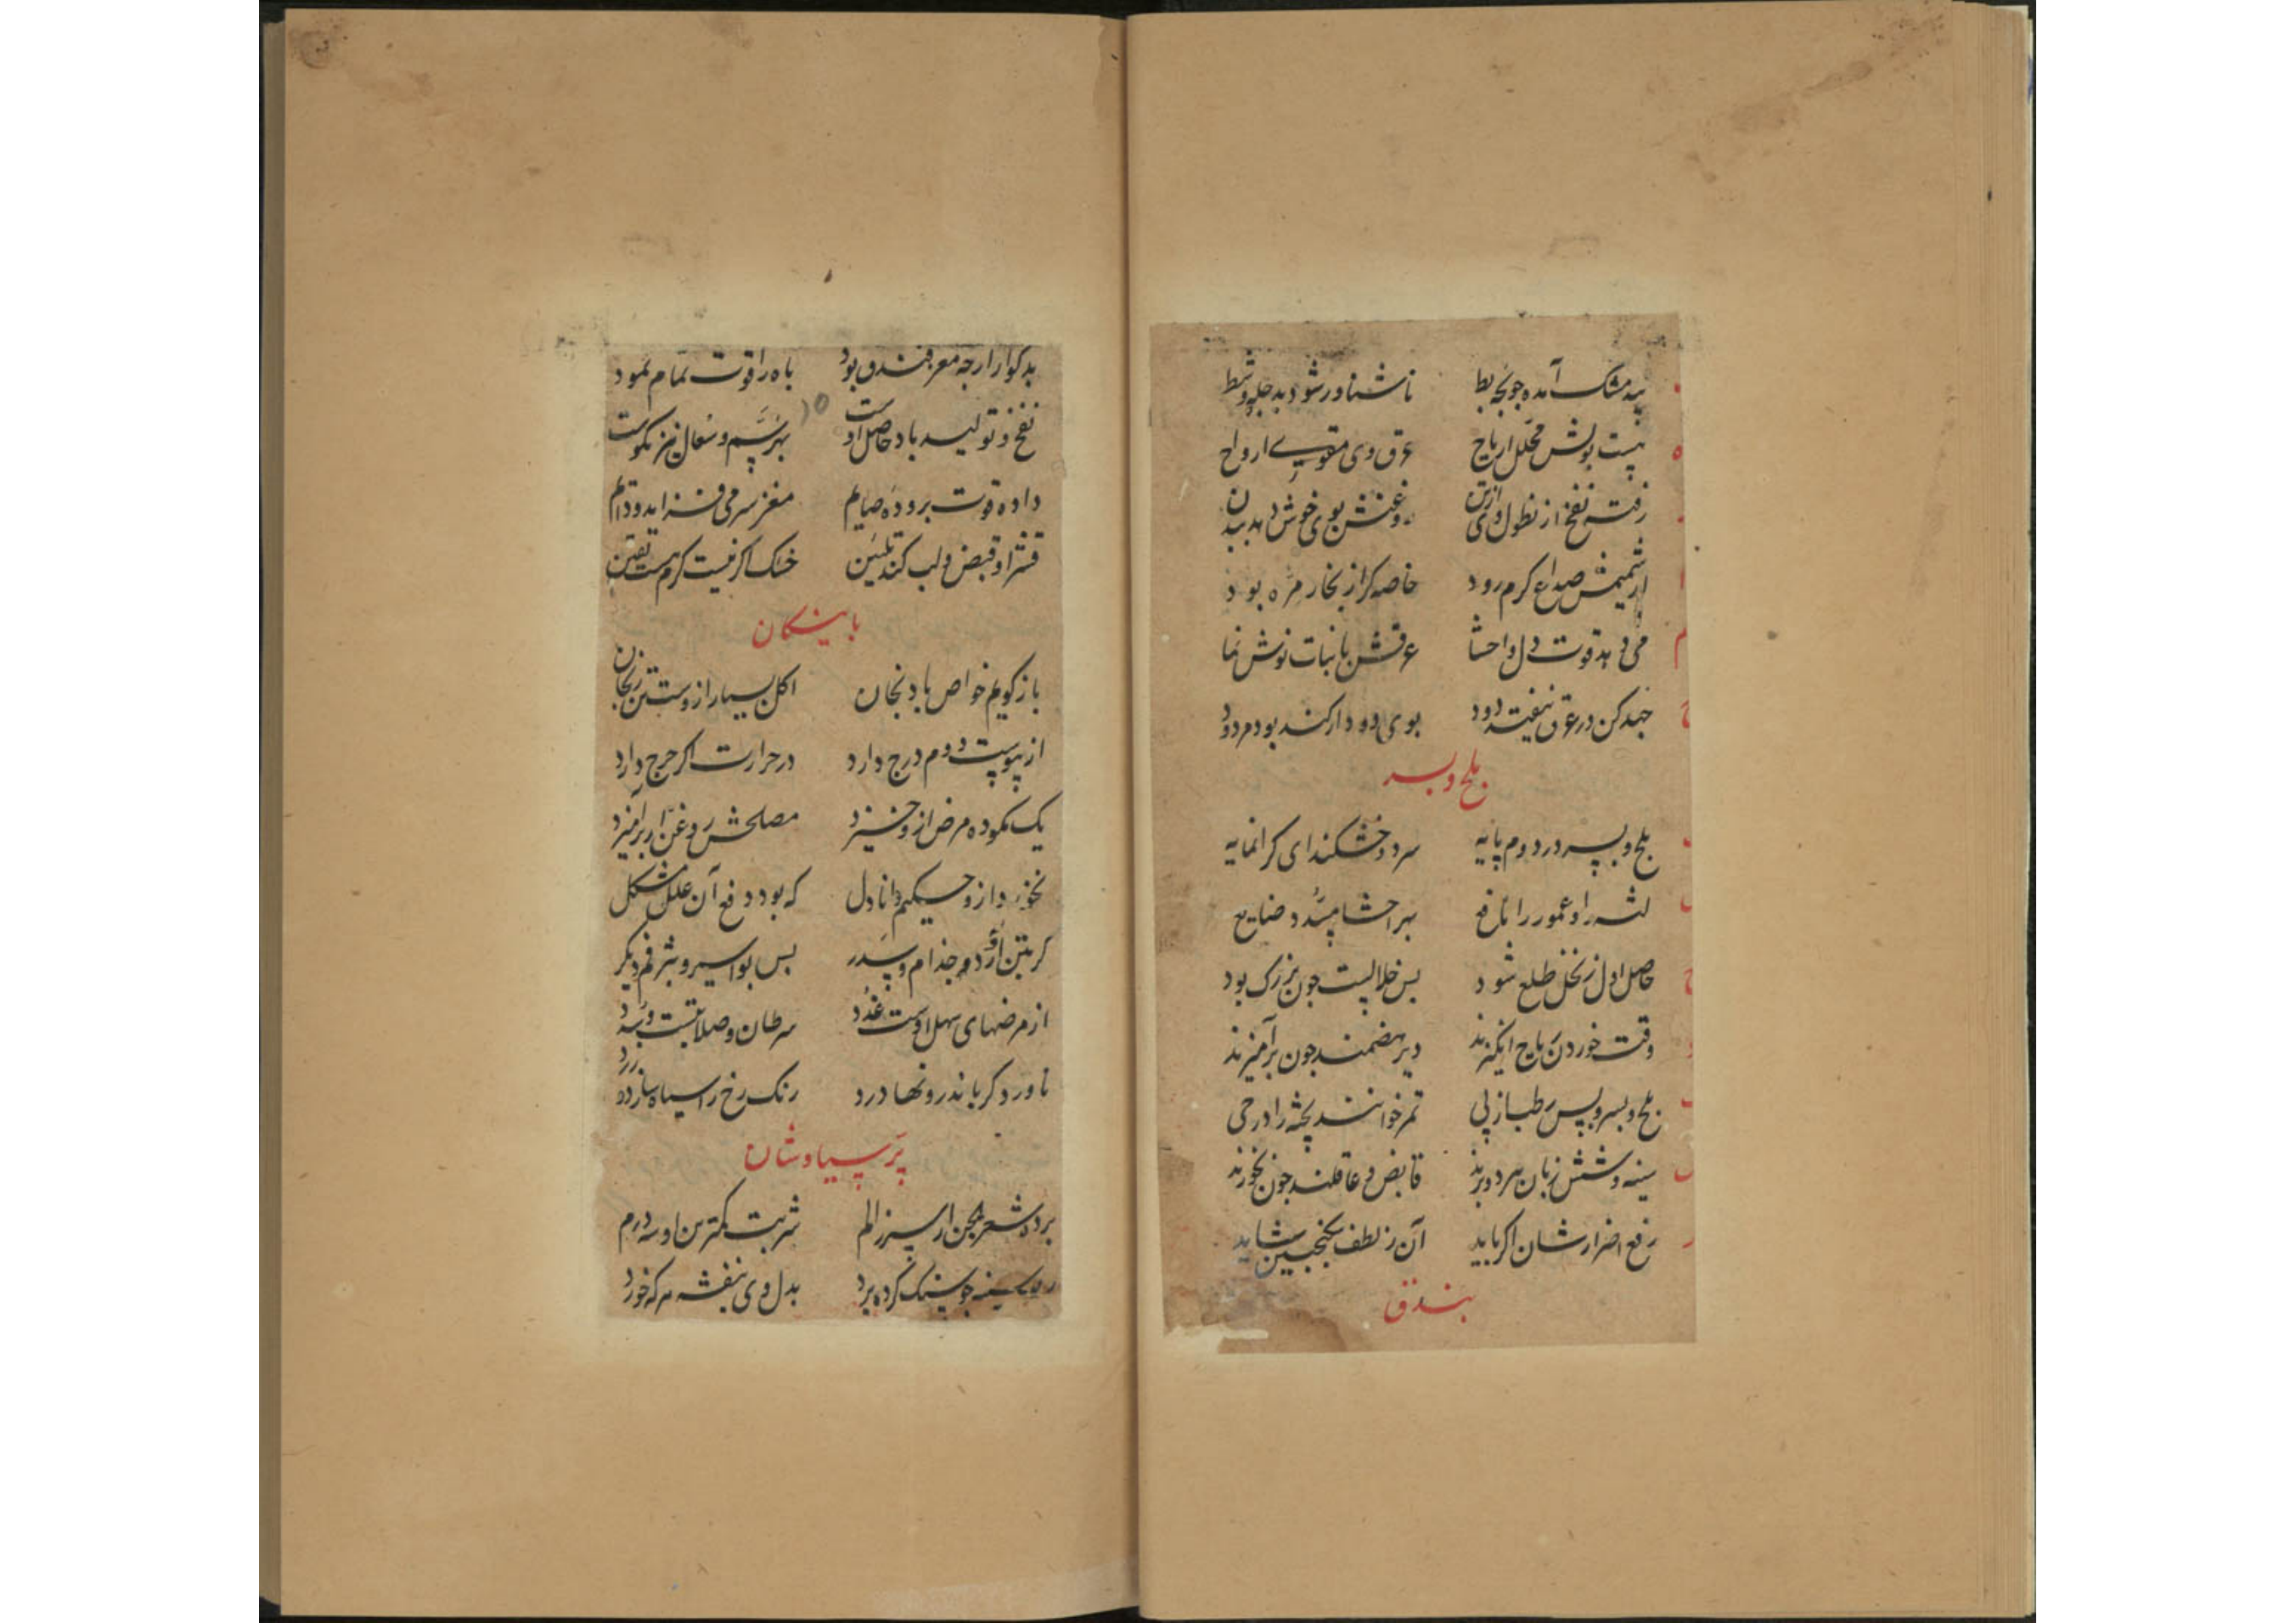 بید مشک آمده چو بچه بط تا شناور شود بدجله و شط
نیست بویش محلل ارباح عرق وی مقوی ارواح
رفته نفخ از نطول وی روغنش بوی خوش دهد ببدن
از شمیمش صداع کرم رود خاصه کز از بخار مره بود
می دهد قوت دل و احشا عرقش با نبات نوش نما
جهد کن در عرق نیفتد دود بوی دود ار کند بود مردود
بلح و بسر
بلح و بسر در دوم پایه سرد و خشکند ای کرانمایه
لثه را و عمور را نافع بهر احشا
حاصل اول ز نخل طلع شود پس خلالست چون بزرک بود
وقت خوردن ریاح انکیزند دیر هضمند چون برآمیزند
بلح و بسر و پس رطب از پی تمر خوانند پخته را در حی
سینه و شش زیان برد و بزند قابض و عاقلند چون بخورند
رفع اضرارشان اکر باید آن ز لطف سکنجبین شاید
بندق
بد کوار ار چه مغز فندق بود باه را قوت تمام نمود
نفخ و تولید باد حاصل اوست بهر سم و سعال نیز نکوست
داده قوت بروده صایم مغز سر می فزاید و دایم
قشر او قبض و لب کند تلیین خشک اکر نیست کرم هست یقین
باتینکان
باز کویم خواص بادنجان اکل بسیار ازوست تن رنجان
از یبوست دوم درج دارد در حرارت اکر حرج دارد
یک نکوده مرض ازو خیزد مصلحش روغن ار برآمیزد
نخورد ازو حکیم دانا دل که بود دفع آن علل مشکل
کر بتن آورد جذام و سدر پس بواسیر و بثر فم دیکر
از مرضهای سهل اوست غدد سرطان و صلابتست و سدد
ناورد کر باندرونها درد رنک رخ را سیاه سازد و زرد
پر سیاوشان
برده شعر الجن از سپرز الم شربت کمترین او سه درم
سینه چو سنک کرده برد بدل وی بنفشه هر که خورد